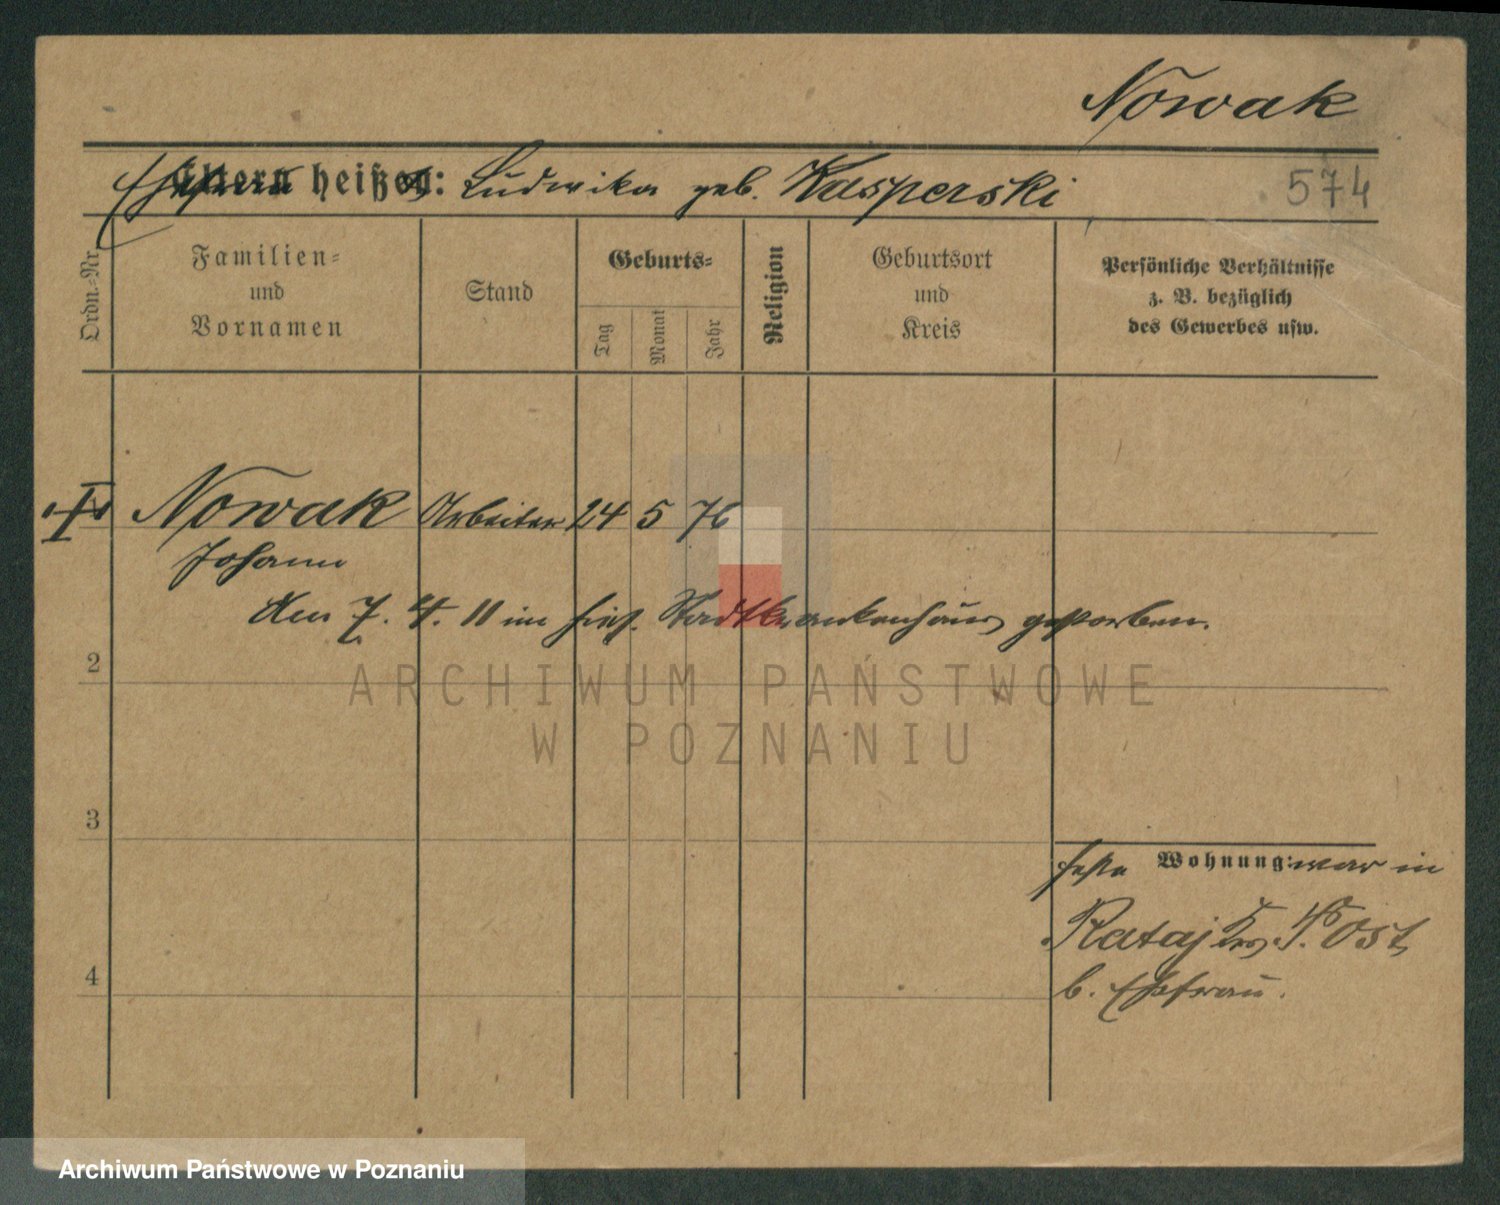 Nowak
Ehefrau heißt: Ludwika geb. Kasperski
574
Ordn.=Nr.
Familien=
und
Vornamen
Stand
Geburts=
Tag
Monat
Jahr
Religion
Geburtsort
und
Kreis
Persönliche Verhältnisse
z. B. bezüglich
des Gewerbes usw.
Nowak Arbeiter 24 5 76
Johann
den 7. 4. 11 im hies. Stadtkrankenhaus gestorben.
2
ARCHIWUM PAŃSTWOWE
W POZNANIU
3
feste Wohnung: war in
Rataj Krs. P. Ost
4
b. Ehefrau.
Archiwum Państwowe w Poznaniu